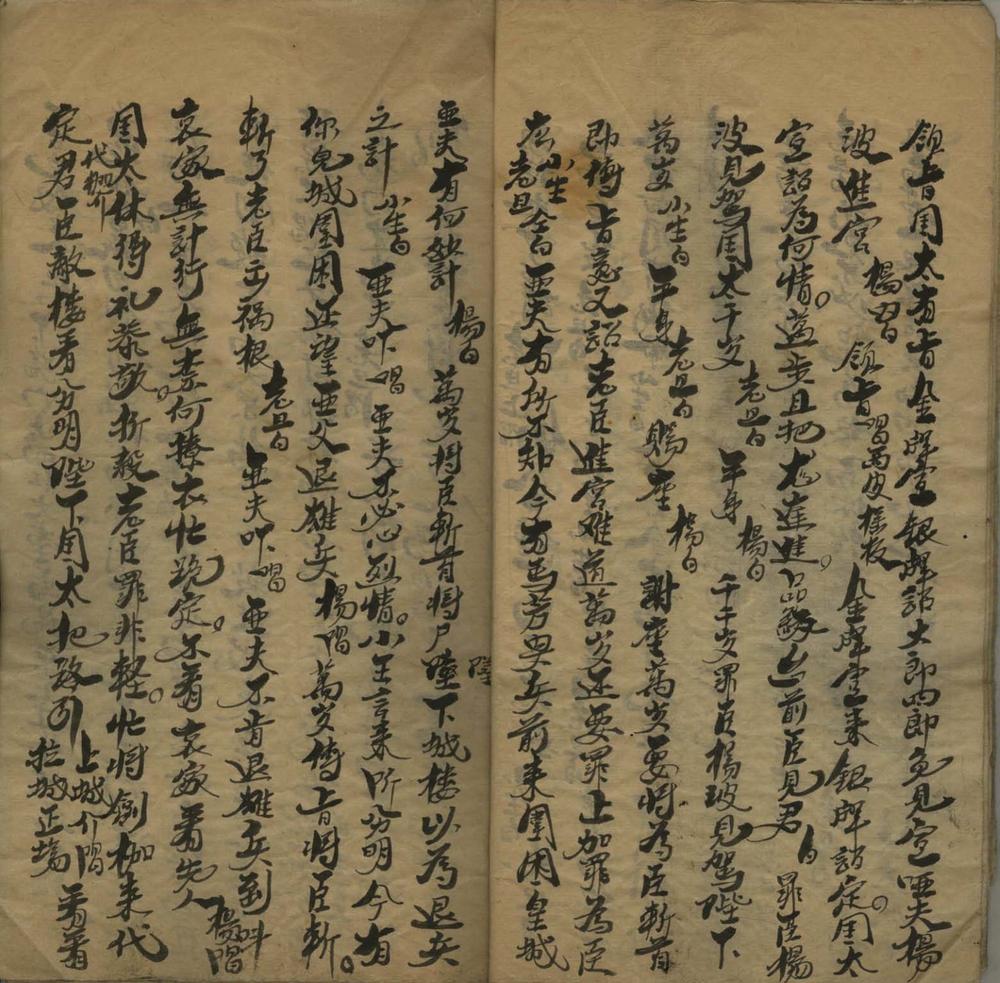 領旨国太有旨金牌宣銀牌詔大郎四郎免見宣啞夫楊
波進宮 楊白 領旨 唱西皮搖板 金牌宣來銀牌詔定国太
宣詔為何情。邁步且把龙廷進。品級台前臣見君 白 罪臣楊
波見駕国太千岁 老旦白 平身 楊白 千千岁罪臣楊波見駕陛下
萬岁 小生白 平身 老旦白 賜座 楊白 謝座萬岁要將為臣斬首
即傳旨意又詔老臣進宮难道萬岁还要罪上加罪為臣
小生老旦仝白 亚夫有所不知今有馬芳興兵前来圍困皇城
亚夫有何妙計 楊白 萬岁將臣斬首將尸墜下城楼以為退兵
之計 小生白 亚夫吓 唱 亚夫不必心烈情。小王言来听分明今有
你兒城圍困还望亚父退雄兵 楊唱 萬岁傳旨將臣斬。
斬了老臣去禍根 老旦白 亚夫吓 唱 亚夫不肯退雄兵到
哀家無計行無奈何撩衣忙跪定。不看哀家看先人 楊唱
国太休得礼恭敬。折殺老臣罪非輕。忙將劍枷来代
代枷介 定君臣敵楼看分明陛下国太把路引 上城介唱 拉城正塲 看着